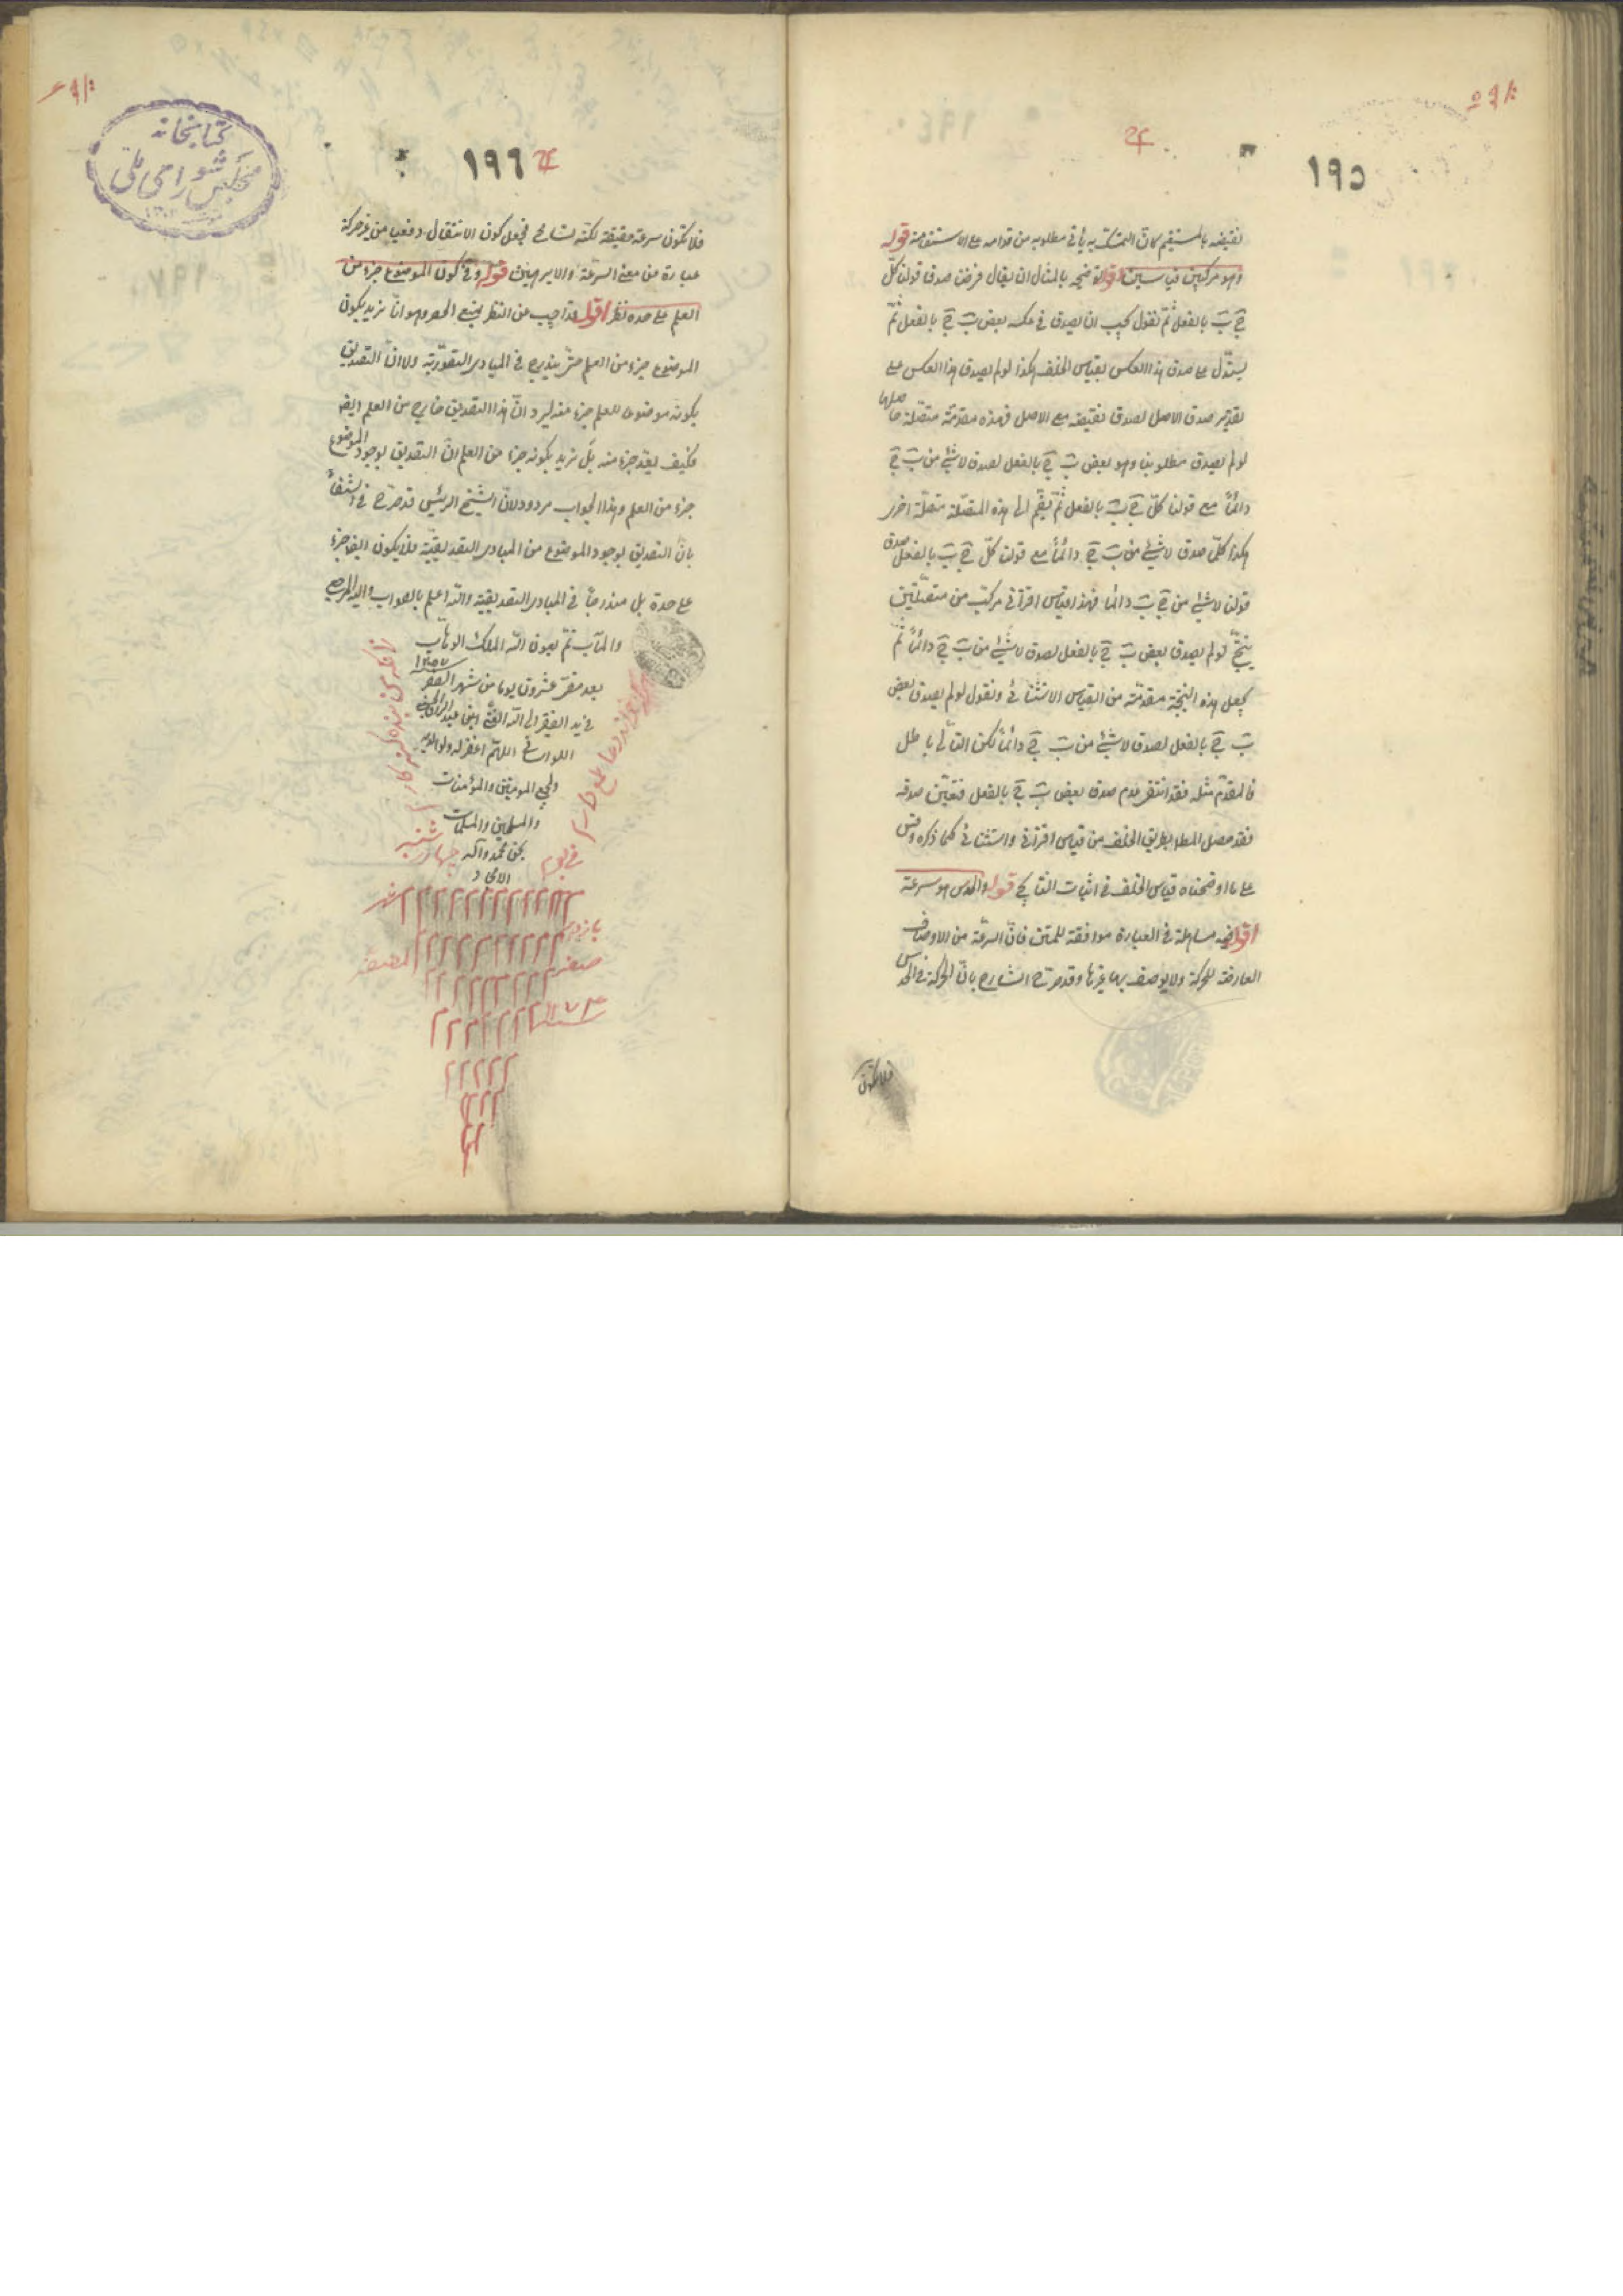 ١٩٥
نقيضه بالمستقيم كان المتمسك به يأتي مطلوبه من قدامه على الاستقامة قوله
وهو مركب من قياسين اقول توضيحه بالمثال ان يقال فرضنا صدق قولنا كلّ
ج ب بالفعل ثمّ نقول يجب ان يصدق في عكسه بعض ب ج بالفعل ثمّ
يستدلّ على صدق هذا العكس بقياس الخلف هكذا لو لم يصدق هذا العكس على
تقدير صدق الاصل لصدق نقيضه مع الاصل فهذه مقدّمة متصّلة حاصلها
لو لم يصدق مطلوبنا وهو بعض ب ج بالفعل لصدق لا شئ من ب ج
دائماً مع قولنا كلّ ج ب بالفعل ثمّ يضمّ الى هذه المتصّلة متصّلة اخرى
هكذا كلّما صدق لا شئ من ب ج دائماً مع قولنا كلّ ج ب بالفعل صدق
قولنا لا شئ من ج ج دائما فهذا قياس اقترانى مركّب من متصّلتين
ينتجّ لو لم يصدق بعض ب ج بالفعل لصدق لا شئ من ج ج دائماً ثمّ
يجعل هذه النتيجة مقدّمة من القياس الاستثنائى ونقول لو لم يصدق بعض
ب ج بالفعل لصدق لا شئ من ج ج دائماً لكن التّالى باطل
فالمقدّم مثله فقد انتفى عدم صدق بعض ب ج بالفعل فتعيّن صدقه
فقد حصل المط بطريق الخلف من قياس اقترانى واستثنائى كما ذكره وقس
على ما اوضحناه قياس الخلف في اثبات النتايج قوله والحدس هو سرعة
اقول فيه مساهلة في العبارة موافقة للمتن فانّ السرعة من الاوصاف
العارضة للحركة ولا يوصف بها غيرها وقد صرّح الشارح بانّ لا حركة في الحدس
فلا تكون
١٩٦
كتابخانه
مجلس شوراى ملى
فلا تكون سرعة حقيقة لكنّه تسامح فجعل كون الانتقال دفعيا من غير حركة
عبارة عن معنى السرعة والامر هيّن قوله وفي كون الموضوع جزء من
العلم على حده نظر اقول قد اجيب عن النظر بمنع الحصر وهو انّا نريد بكون
الموضوع جزء من العلم حتّى يندرج في المبادى التصوّريّة ولا انّ التصديق
بكونه موضوعا للعلم جزء منه ليرد انّ هذا التصديق خارج من العلم ايضا
فكيف يعدّ جزء منه بل نريد بكونه جزءا من العلم انّ التصديق بوجود الموضوع
جزء من العلم وهذا الجواب مردود لانّ الشّيخ الرئيس قد صرّح في الشفاء
بانّ التصديق بوجود الموضوع من المبادى التصديقيّة فلا يكون ايضا جزء
على حدة بل مندرجاً في المبادى التصديقيّة واللّه اعلم بالصواب واليه المرجع
والمآب تمّ بعون اللّه الملك الوهّاب
بعد مضىّ عشرون يوما من شهر الصفر
في يد الفقير الى اللّه الغنى ابن عبد
اللواسانى اللهمّ اغفر له ولوالديه
ولجميع المومنين والمؤمنات
والمسلمين والمسلمات
بحق محمد وآله
الامجاد
هر كه خواند دعا طمع دارم
زانكه من بنده گنه كارم
في يوم
چهار شنبه
شهر
صفر
المظفر